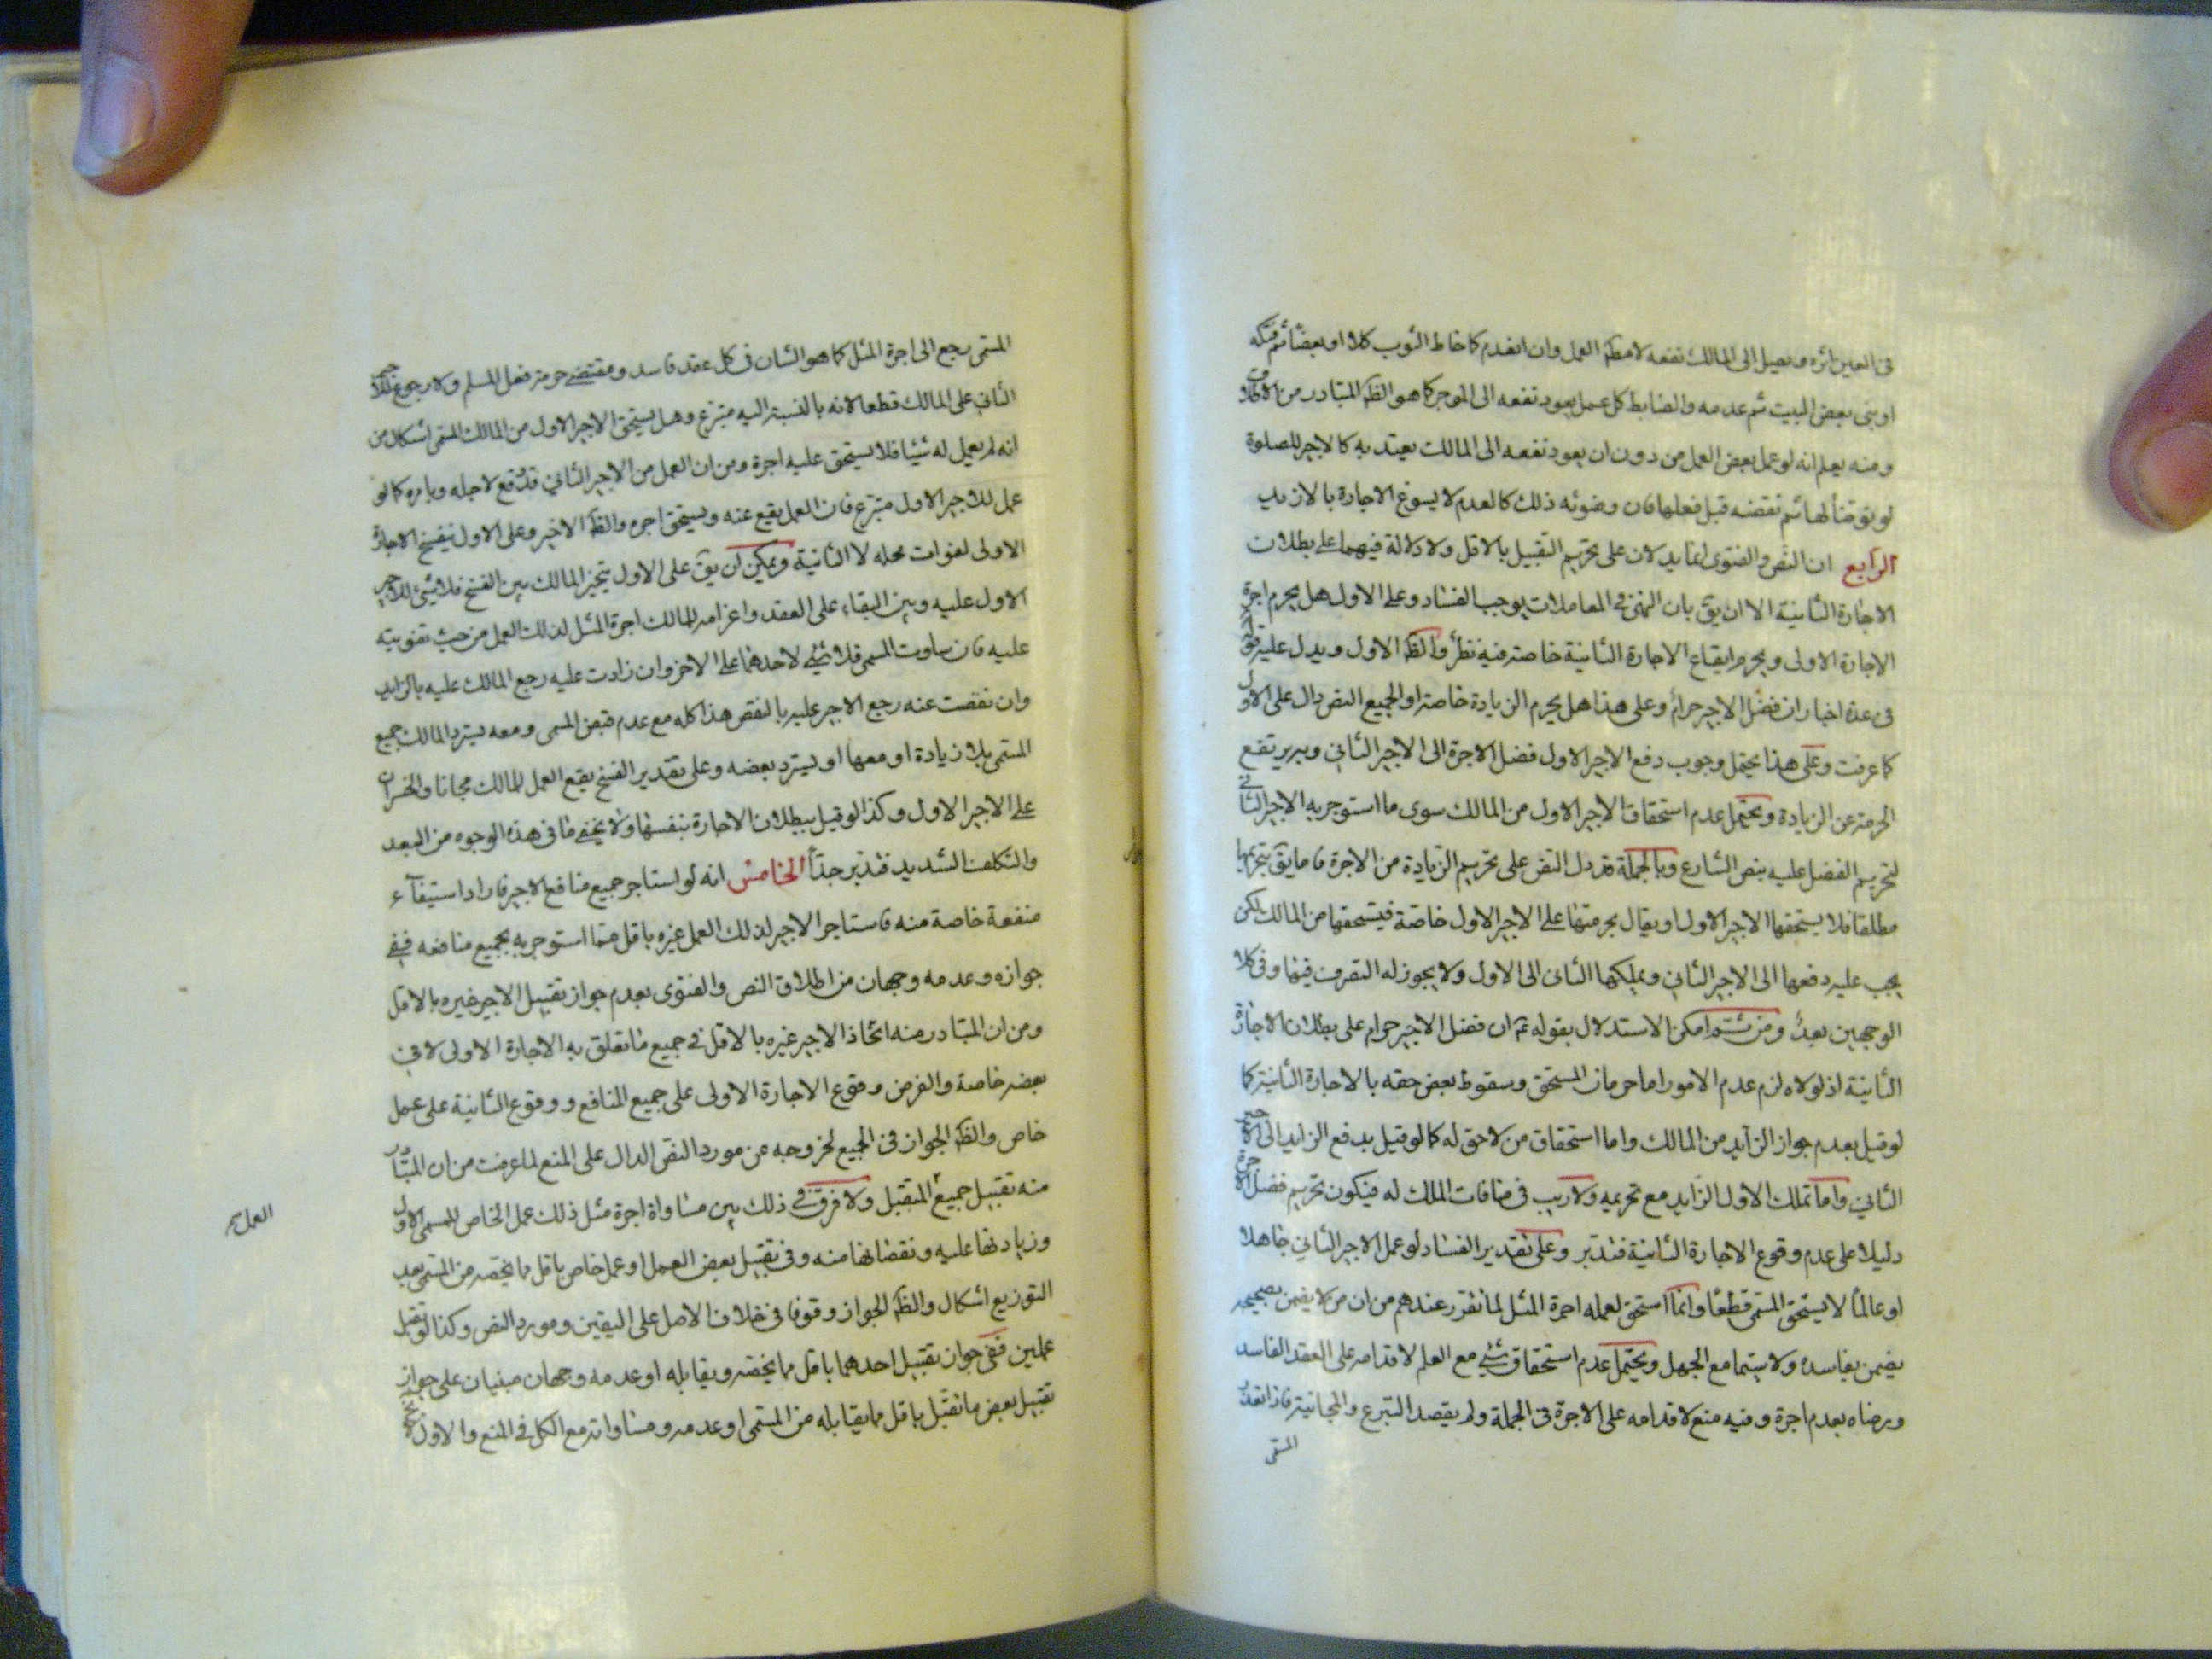 فى العين اثره ويصل الى المالك نفعه لا مطلق العمل وان انعدم كما خاط الثوب كلا او بعضا ثم فتكه
او بنى بعض البيت ثم عدمه والضابط كل عمل يعود نفعه الى الموجر كما هو الظ المتبادر من
ومنه يعلم انه لو عمل بعض العمل من دون ان يعود نفعه الى المالك يعتد به كالاجير للصلوة
لو توضأ لها ثم نقضه قبل فعلها فان وضوئه ذلك كالعدم لا يسوغ الاجارة بالازيد
الرابع ان النص والفتوى انما يدلان على تحريم التقبيل بالاقل ولا دلالة فيهما على بطلان
الاجارة الثانية الا ان يق بان النهى فى المعاملات يوجب الفساد وعلى الاول هل يحرم اجرة
الاجارة الاولى ويحرم ايقاع الاجارة الثانية خاصة فيه نظر والظ الاول ويدل عليه قوله
فى عدة اخبار ان فضل الاجير حرام وعلى هذا هل يحرم الزيادة خاصة او الجميع النص دال على الاول
كما عرفت وعلى هذا يحتمل وجوب دفع الاجير الاول فضل الاجرة الى الاجير الثانى وبه يرتفع
الحرمة عن الزيادة ويحتمل عدم استحقاق الاجير الاول من المالك سوى ما استوجر به الاجير الثانى
لتحريم الفضل عليه بنص الشارع وبالجملة قد دل النص على تحريم الزيادة من الاجرة فاما يق بتحريمها
مطلقا فلا يستحقها الاجير الاول او يقال بحرمتها على الاجير الاول خاصة فيستحقها من المالك لكن
يجب عليه دفعها الى الاجير الثانى ويملكها الثانى الى الاول ولا يجوز له التصرف فيها وفى كلا
الوجهين بعد ومن ثم امكن الاستدلال بقوله ع ان فضل الاجير حرام على بطلان الاجارة
الثانية اذ لولاه لزم عدم الامور اما حرمان المستحق وسقوط بعض حقه بالاجارة الثانية كما
لو قيل بعدم جواز الزايد من المالك واما استحقاق من لا حق له كما لو قيل بدفع الزايد الى الاجير
الثانى واما تملك الاول الزايد مع تحريمه ولا ريب فى منافات الملك له فيكون تحريم فضل الاجرة
دليلا على عدم وقوع الاجارة الثانية فتدبر وعلى تقدير الفساد لو عمل الاجير الثانى جاهلا
او عالما لا يستحق المسمى قطعا وانما استحق لعمله اجرة المثل لما تقرر عندهم من ان من لا يضمن بصحيحه
يضمن بفاسده ولا سيما مع الجهل ويحتمل عدم استحقاق شئ مع العلم لاقدامه على العقد الفاسد
ورضاه بعدم اجرة وفيه منع لاقدامه على الاجرة فى الجملة ولم يقصد التبرع والمجانية فاذا تعذر
المسمى
المسمى رجع الى اجرة المثل كما هو الشان فى كل عقد فاسد ومقتضى حرمة فعل المسلم ولا رجوع للاجير
الثانى على المالك قطعا لانه بالنسبة اليه متبرع وهل يستحق الاجير الاول من المالك المسمى اشكال من
انه لم يعمل له شيئا فلا يستحق عليه اجرة ومن ان العمل من الاجير الثانى قد وقع لاجله وبامره كما لو
عمل للاجير الاول متبرع فان العمل يقع عنه ويستحق اجره والظ الاخير وعلى الاول ينفسخ الاجارة
الاولى لفوات محله لا الثانية ويمكن ان يق على الاول يتخير المالك بين الفسخ فلا شئ للاجير
الاول عليه وبين البقاء على العقد واغرامه للمالك اجرة المثل لذلك العمل من حيث تفويته
عليه فان ساوت المسمى فلا شئ لاحدهما على الاخر وان زادت عليه رجع المالك عليه بالزايد
وان نقصت عنه رجع الاجير عليه بالنقص هذا كله مع عدم قبض المسمى ومعه يسترد المالك جميع
المسمى بلا زيادة او معها او يسترد بعضه وعلى تقدير الفسخ يقع العمل للمالك مجانا والخسران
على الاجير الاول وكذا لو قيل ببطلان الاجارة بنفسها ولا يخفى ما فى هذه الوجوه من البعد
والتكلف الشديد فتدبر جدا الخامس انه لو استاجر جميع منافع الاجير فاراد استيفآء
منفعة خاصة منه فاستاجر الاجير لذلك العمل غيره باقل مما استوجر به بجميع منافعه ففى
جوازه وعدمه وجهان من اطلاق النص والفتوى بعدم جواز تقبيل الاجير غيره بالاقل
ومن ان المتبادر منه اتخاذ الاجير غيره بالاقل فى جميع ما تعلق به الاجارة الاولى لا فى
بعضه خاصة والفرض وقوع الاجارة الاولى على جميع المنافع ووقوع الثانية على عمل
خاص والظ الجواز فى الجميع لخروجه عن مورد النص الدال على المنع لما عرفت من ان المتبادر
منه تقبيل جميع المتقبل ولا فرق فى ذلك بين مساواة اجرة مثل ذلك عمل الخاص للمسمى الاول
العمل
وزيادتها عليه ونقصانها منه وفى تقبيل بعض العمل او عمل خاص باقل مما يخصه من المسمى بعد
التوزيع اشكال والظ الجواز وقوفا فى خلاف الاصل على اليقين ومورد النص وكذا لو تقبل
عملين ففى جواز تقبيل احدهما باقل مما يخصه ويقابله او عدمه وجهان مبنيان على جواز
تقبيل بعض ما تقبل باقل مما يقابله من المسمى او عدمه ومساواته مع الكل فى المنع والاول